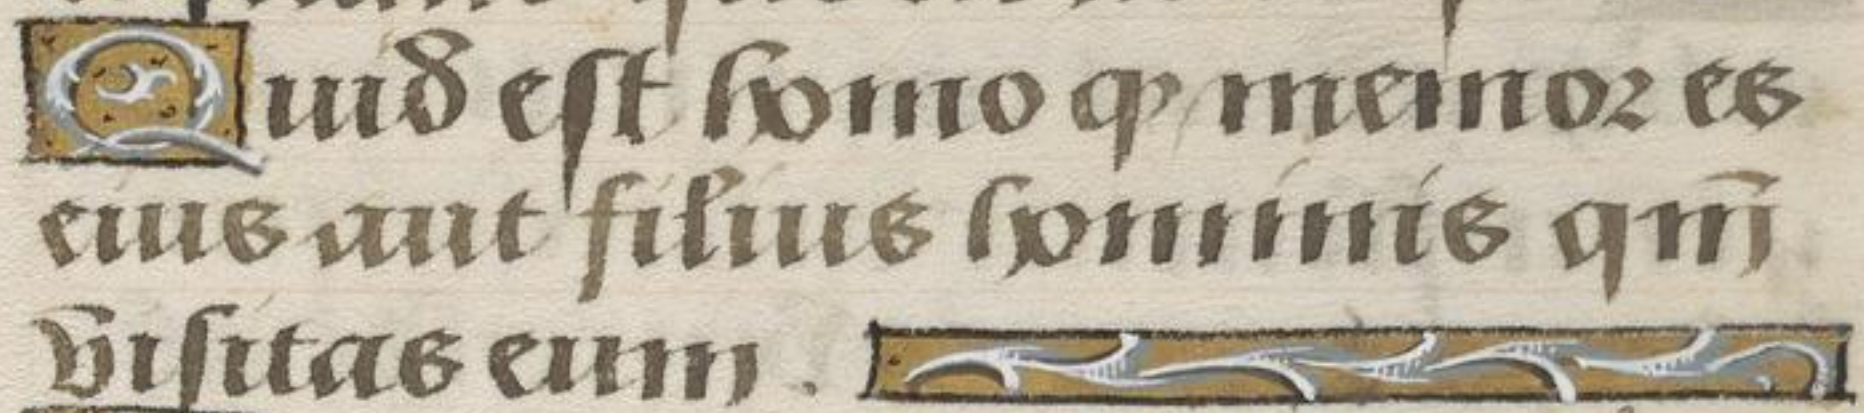 Quid est homo qp memor es
eius aut filius hominis qm̄
visitas eum .